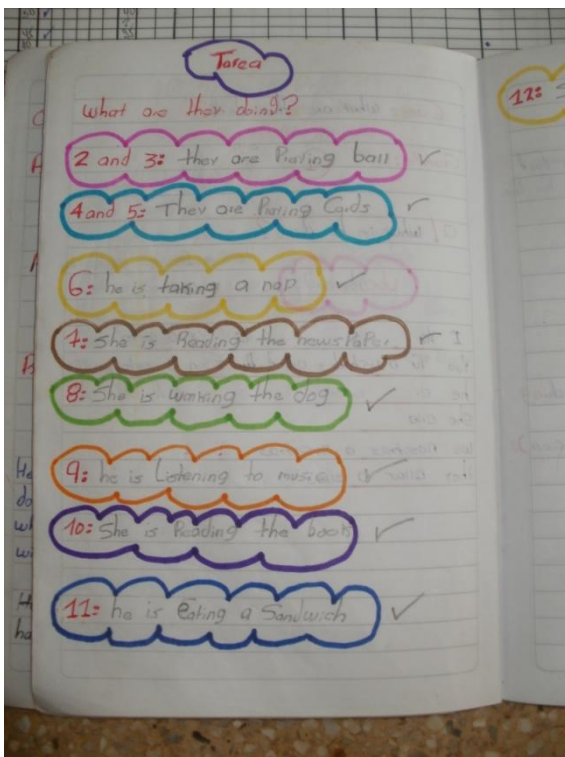 Tarea
what are they doing?
2 and 3: they are Plating ball
4 and 5: They are Plating Cards
6: he is taking a nap
7: She is Reading the newsPaPer
8: She is walking the dog
9: he is Listening to music
10: She is Reading the book
11: he is Eating a Sandwich
12: